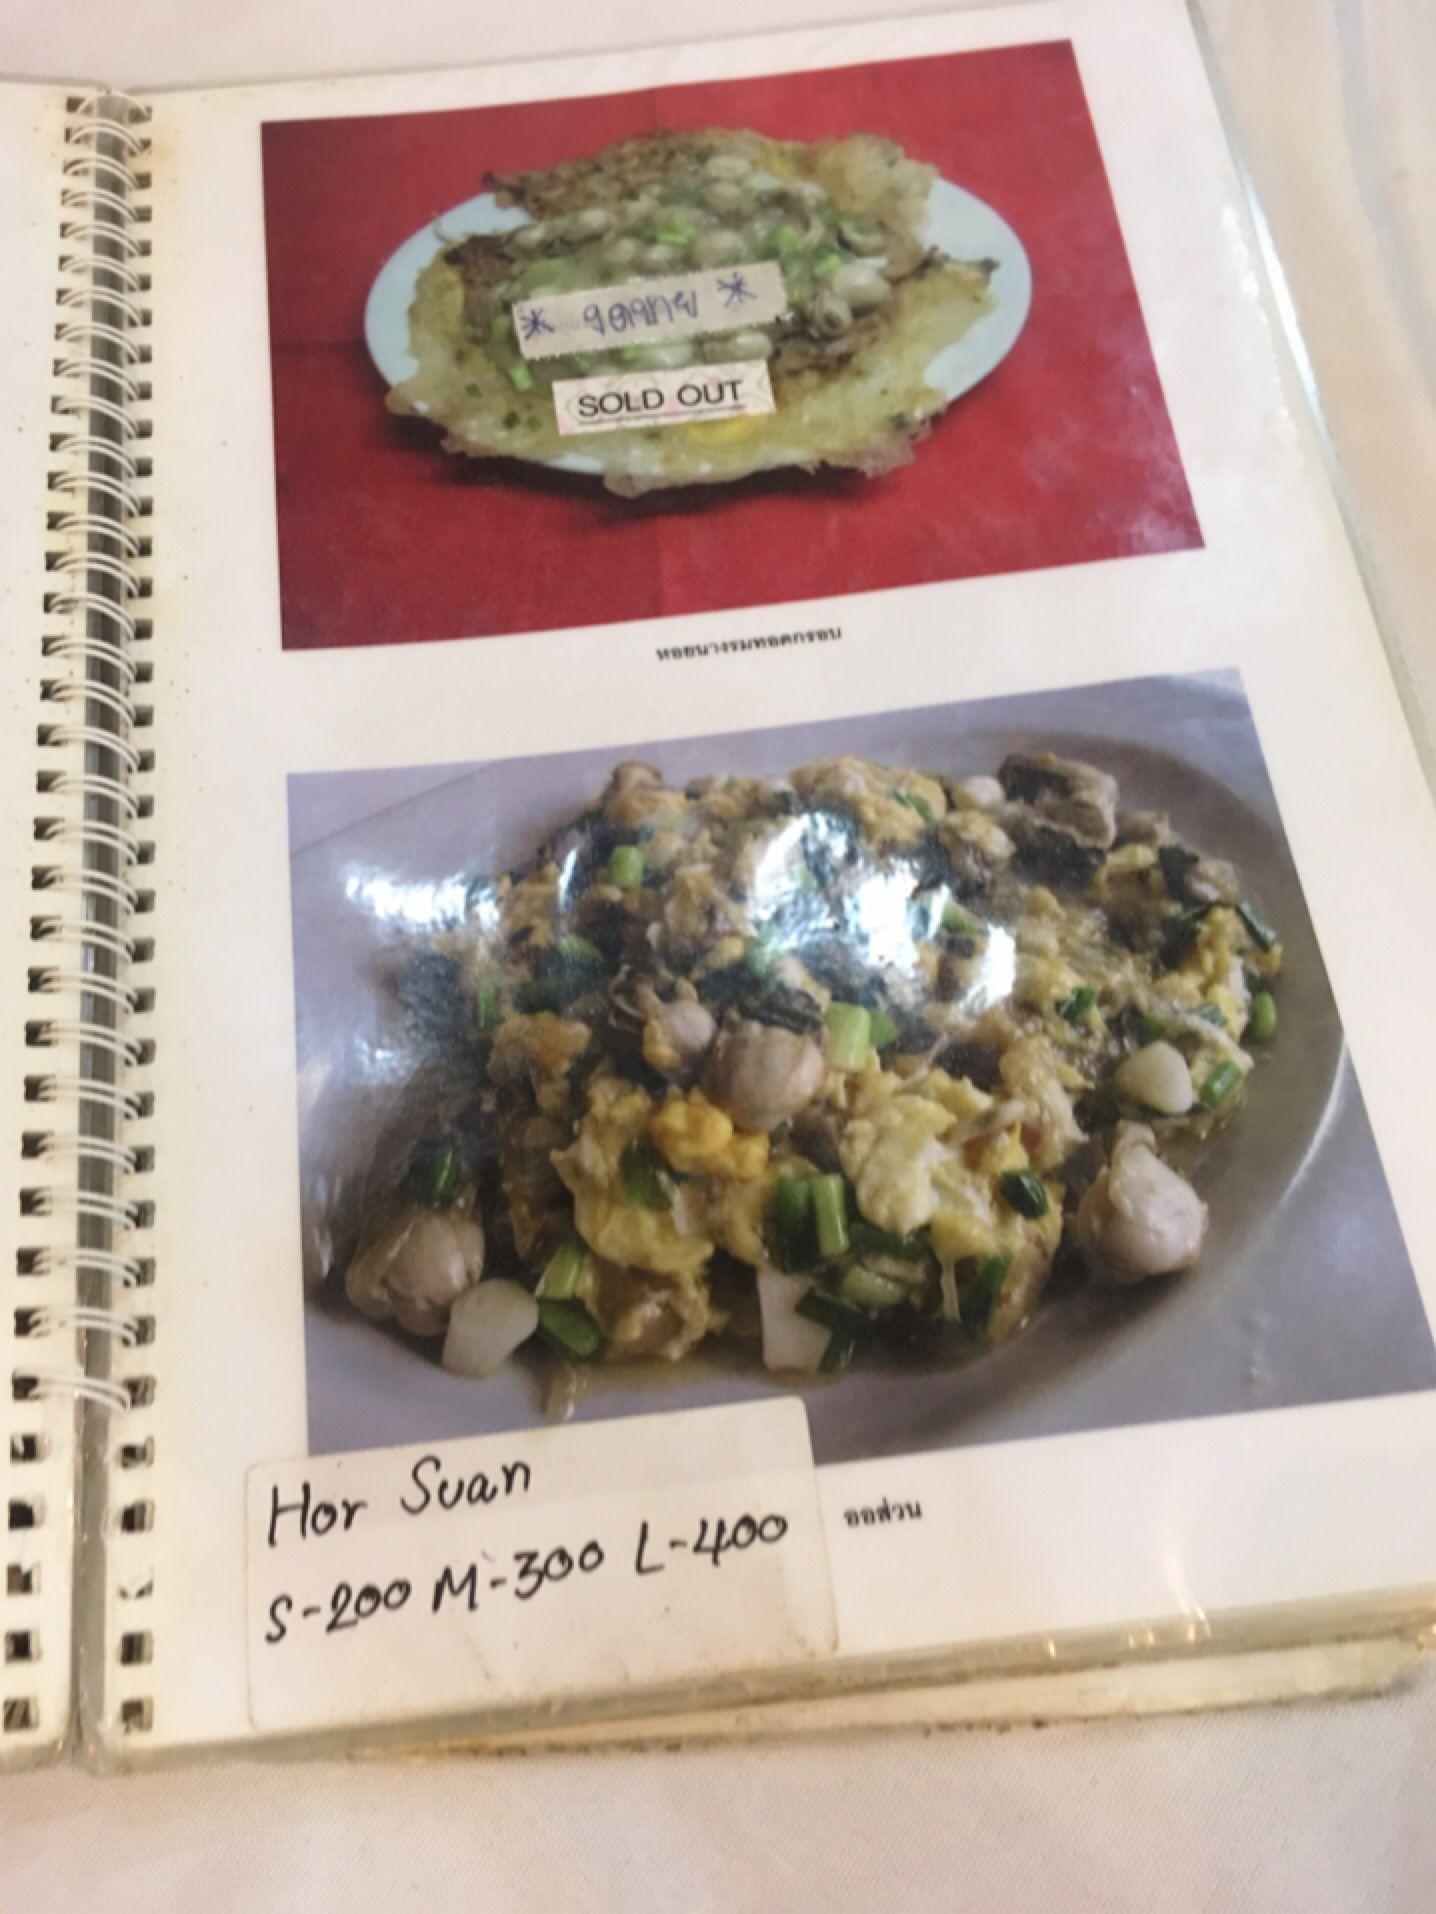 * งดขาย *
SOLD OUT
หอยนางรมทอดกรอบ
Hor Suan
S-200 M-300 L-400
ออส่วน